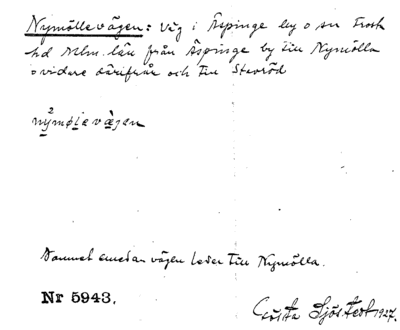 Nymöllevägen: Väg i Äspinge by o sn Frosta
hd Mlm. län från Äspinge by till Nymölla
o vidare därifrån och till Stavröd
nymølevæjen
Namnet emedan vägen leder till Nymölla.
Nr 5943.
Gösta Sjöstedt 1927.